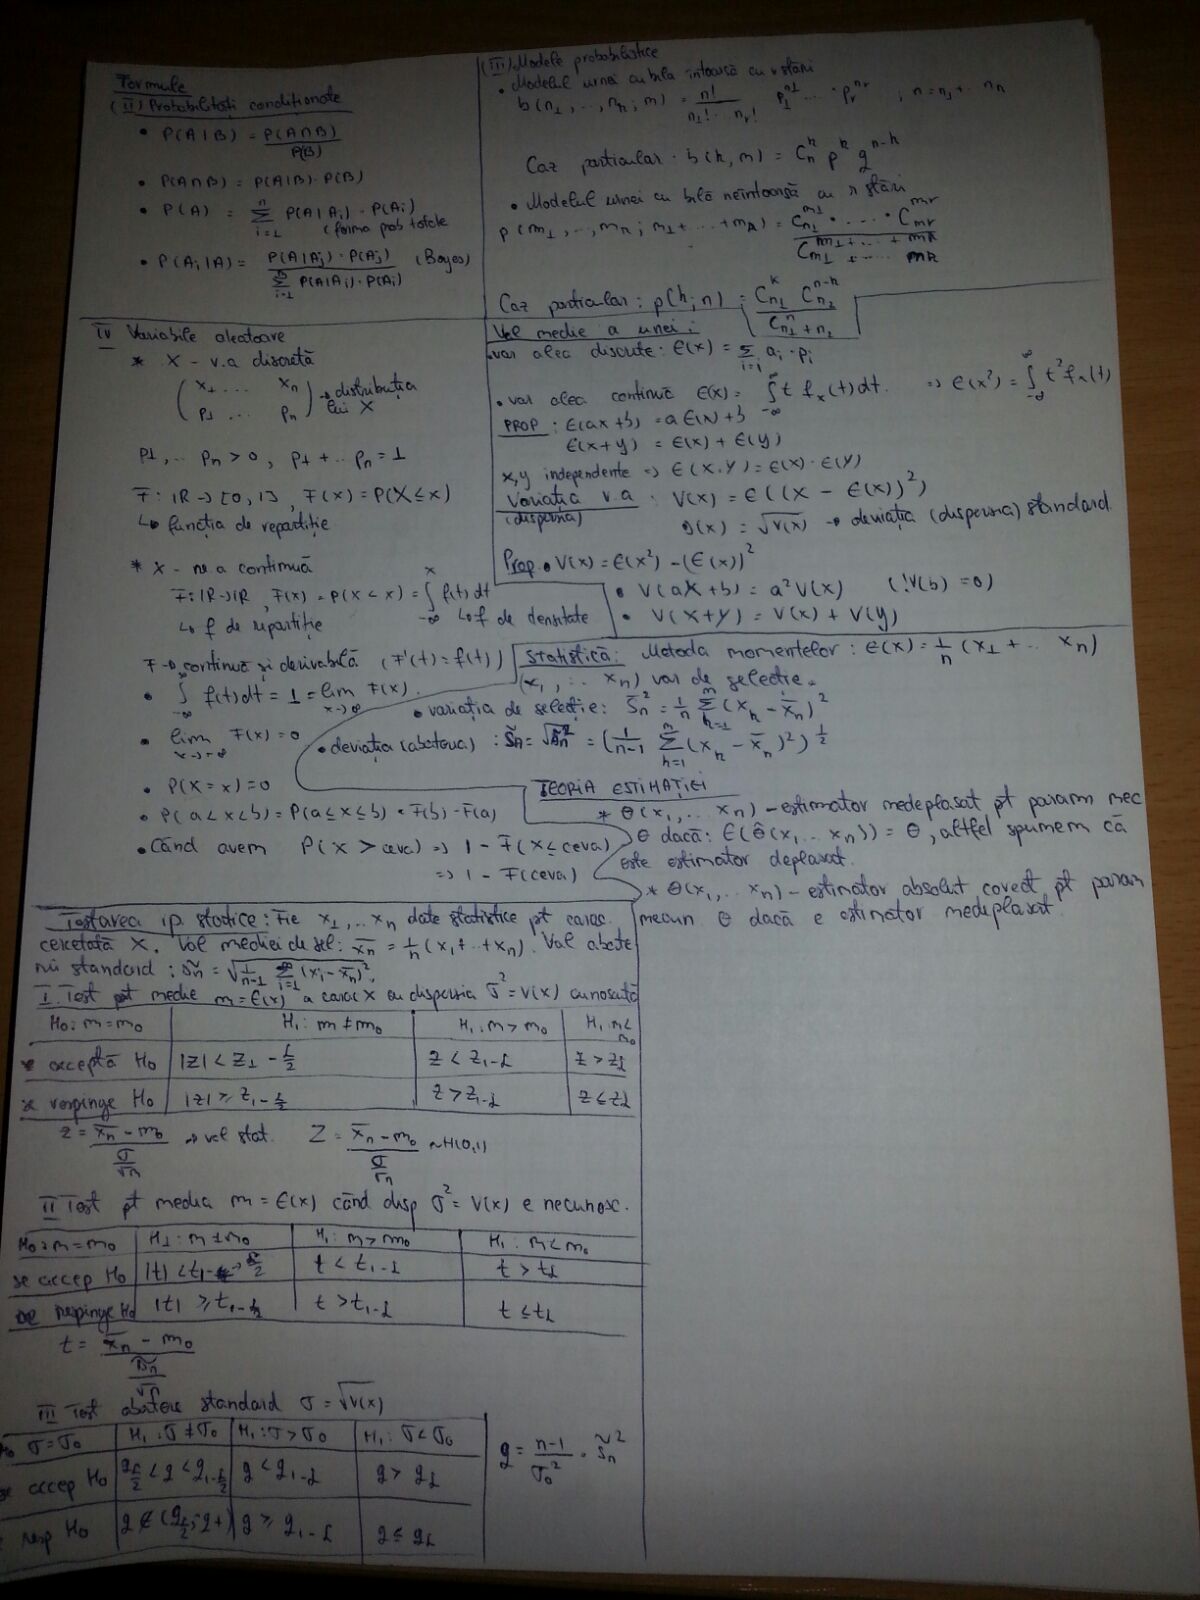 Formule
(II) Probabilități condiționate
• P(A|B) = P(A∩B) / P(B)
• P(A∩B) = P(A|B)·P(B)
• P(A) = Σ_{i=1}^{n} P(A|A_i)·P(A_i)
(forma prob totale
• P(A_i|A) = P(A|A_j)·P(A_j) / Σ_{i=1}^{n} P(A|A_i)·P(A_i) (Bayes)
(III) Modele probabilistice
• Modelul urnei cu bila întoarsă cu r stări
b(n_1, .., n_r; n) = n! / n_1!· n_r! p_1^{n_1} ... · p_r^{n_r} ; n = n_1 + .. n_r
Caz particular · b(k, n) = C_n^k p^k q^{n-k}
• Modelul urnei cu bilă neîntoarsă cu r stări
p(m_1, .., m_r; m_1 + ... + m_r) = C_{n_1}^{m_1} · ... · C_{mr}^{mr} / C_{m_1 + .... mr}^{m_1 + ... + mr}
Caz particular: p(k; n) = C_{n_1}^{k} C_{n_2}^{n-k} / C_{n_1+n_2}^{n}
IV Variabile aleatoare
* X - v.a discretă
(x_1 .... x_n
p_1 ... p_n) → distribuția lui X
p_1, .. p_n > 0, p_1 + .. p_n = 1
F: IR → [0, 1], F(x) = P(X ≤ x)
↳ funcția de repartiție
* X - continuă
F: IR → IR, F(x) = P(X < x) = ∫_{-∞}^{x} f(t) dt
↳ f de repartiție ↳ f de densitate
F → continuă și derivabilă (F'(t) = f(t))
• ∫_{-∞}^{∞} f(t) dt = 1 = lim_{x→∞} F(x)
• lim_{x→-∞} F(x) = 0
• P(X = x) = 0
• P(a < x < b) = P(a ≤ x ≤ b) = F(b) - F(a)
• Când avem P(X > ceva) ⇒ 1 - F(x ≤ ceva)
⇒ 1 - F(ceva)
Val medie a unei:
• var alea discrete: E(x) = Σ_{i=1} a_i · p_i
• var alea continuă E(x) = ∫_{-∞}^{∞} t f_x(t) dt. ⇒ E(x²) = ∫_{-∞}^{∞} t² f_x(t)
PROP: E(ax + b) = a E(x) + b
E(x + y) = E(x) + E(y)
x, y independente ⇒ E(X·Y) = E(x) · E(Y)
Variația v.a : V(x) = E((X - E(x))²)
(dispersia)
σ(x) = √V(x) → deviația (dispersia) standard
Prop • V(x) = E(x²) - (E(x))²
• V(aX + b) = a² V(x) (!V(b) = 0)
• V(X + Y) = V(x) + V(y)
Statistică: Metoda momentelor: E(x) = 1/n (x_1 + .. x_n)
(x_1, .. x_n) var de selectie.
• variația de selecție: S_n² = 1/n Σ_{k=1}^{n} (x_k - x̄_n)²
• deviația (abaterea) : s̃_n = √s̃_n² = (1/(n-1) Σ_{k=1}^{n} (x_k - x̄_n)²)^{1/2}
TEORIA ESTIMAȚIEI
* θ(x_1, .. x_n) - estimator nedeplasat pt param nec
θ dacă: E(θ̂(x_1 ... x_n)) = θ, altfel spunem că
este estimator deplasat.
* θ(x_1, .. x_n) - estimator absolut corect pt param
necun θ dacă e estimator nedeplasat.
Testarea ip. statice: Fie x_1, .. x_n date statistice pt carac.
cercetată X. Val mediei de sel: x̄_n = 1/n (x_1 + .. + x_n). Val abate
rii standard: s̃_n = √(1/(n-1) Σ_{i=1} (x_i - x̄_n)²).
I. Test pt medie m = E(x) a carac X cu dispersia σ² = V(x) cunoscută
H_0: m = m_0 | H_1: m ≠ m_0 | H_1: m > m_0 | H_1 m < m_0
se acceptă H_0 | |z| < z_{1-α/2} | z < z_{1-α} | z > z_α
se respinge H_0 | |z| ≥ z_{1-α/2} | z > z_{1-α} | z ≤ z_α
z = (x̄_n - m_0) / (σ/√n) → val stat. Z = (x̄_n - m_0) / (σ/√n) ~ N(0,1)
II Test pt media m = E(x) când disp σ² = V(x) e necunosc.
H_0: m = m_0 | H_1: m ≠ m_0 | H_1: m > m_0 | H_1: m < m_0
se accep H_0 | |t| < t_{1-α/2} | t < t_{1-α} | t > t_α
se respinge H_0 | |t| ≥ t_{1-α/2} | t > t_{1-α} | t ≤ t_α
t = (x̄_n - m_0) / (s̃_n/√n)
III Test abatere standard σ = √V(x)
H_0 σ = σ_0 | H_1: σ ≠ σ_0 | H_1: σ > σ_0 | H_1: σ < σ_0
se accep H_0 | g_{α/2} < g < g_{1-α/2} | g < g_{1-α} | g > g_α
resp H_0 | g ∉ (g_{α/2}; g+) | g ≥ g_{1-α} | g ≤ g_α
g = (n-1)/σ_0² · s̃_n²